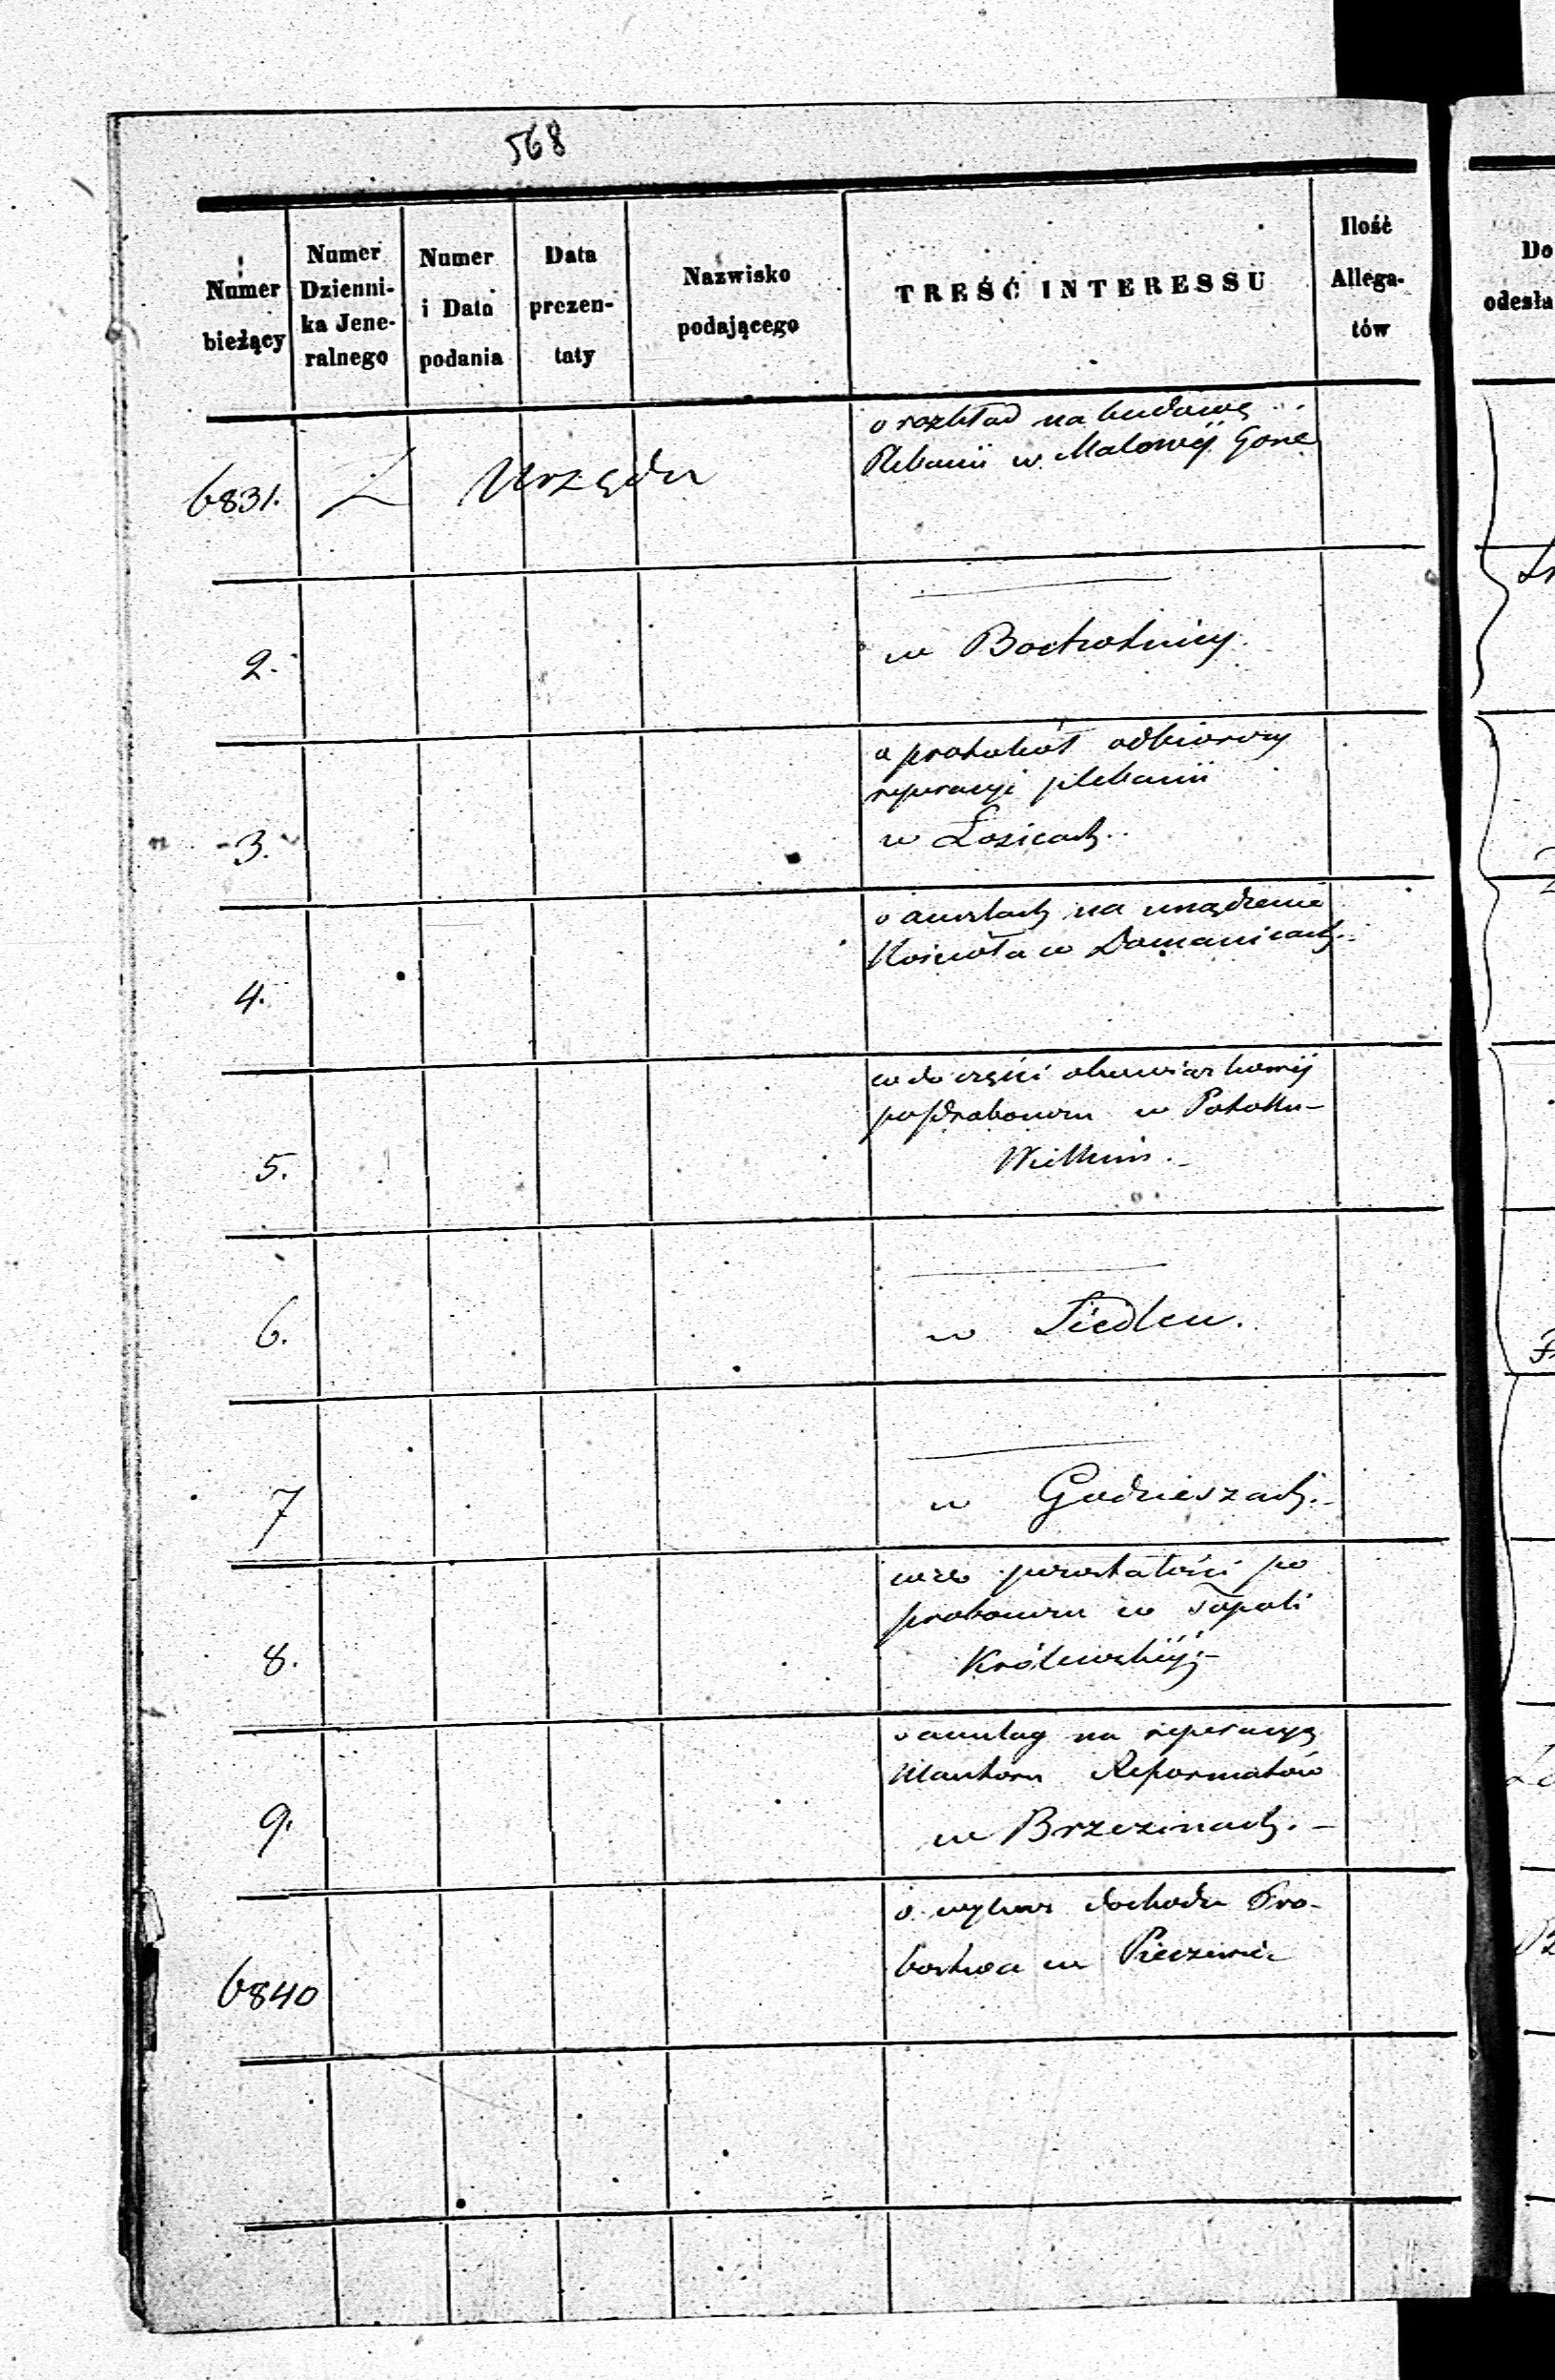 568
Numer bieżący
Numer Dzienni- ka Jene- ralnego
Numer i Data podania
Data prezen- taty
Nazwisko podającego
TREŚĆ INTERESSU
Ilość Allega- tów
Do odesła
6831. Z Urzędu
o rozkład na budowę
Plebanii w Malowej Górze
2.
w Bochotnicy.
3.
o protokół odbiorczy
reperacyi plebanii
w Łosicach.
4.
o anszlach na urządzenie
Kościoła w Domanicach.
5.
co do części obowiązkowej
po Proboszczu w Potoku-
Wielkim.
6.
w Siedlcu.
7
w Godzieszach.
8.
wzw pozostałości po
proboszczu w Topoli
Królewskiej.
9.
o anszlag na reperacyą
Klasztoru Reformatów
w Brzezinach.
6840
o wykaz dochodu Pro-
bostwa w